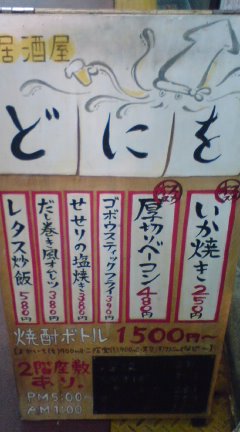 居酒屋
どにを
いか焼き 250円
厚切りベーコン 480円
ゴボウスティックフライ 390円
せせりの塩焼き 380円
だし巻き風オムレツ 380円
レタス炒飯 580円
焼酎ボトル 1500円〜
2階座敷
あり。
PM5:00~
AM1:00